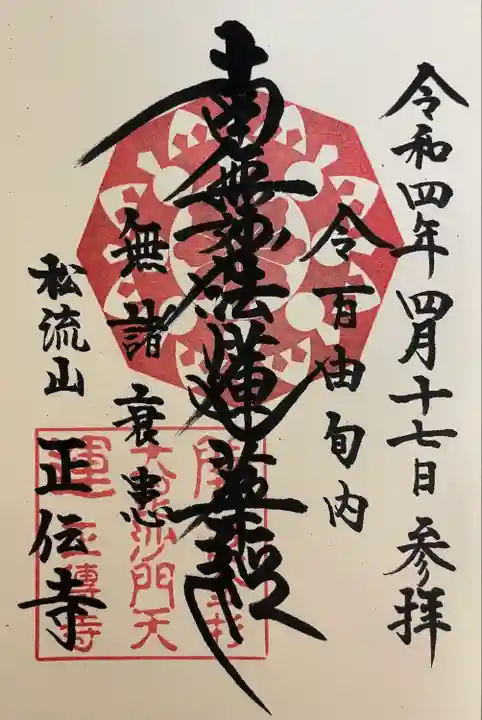 令和四年四月十七日 参拝
令百由旬内
南無妙法蓮華経
無諸衰患
松流山 正伝寺
大毘沙門天